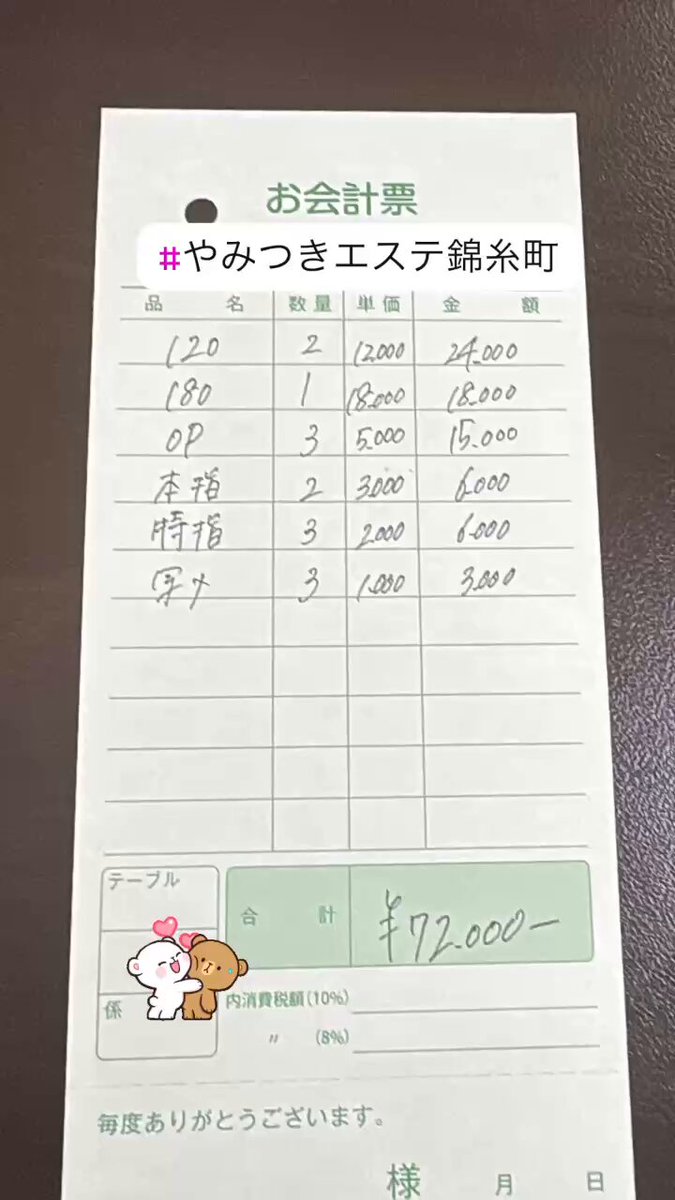 お会計票
#やみつきエステ錦糸町
品名 数量 単価 金額
120 2 12000 24.000
180 1 18.000 18.000
OP 3 5.000 15.000
本指 2 3.000 6.000
特指 3 2.000 6.000
写メ 3 1.000 3.000
テーブル
合計 ¥72.000-
係
内消費税額(10%)
〃 (8%)
毎度ありがとうございます。
様 月 日